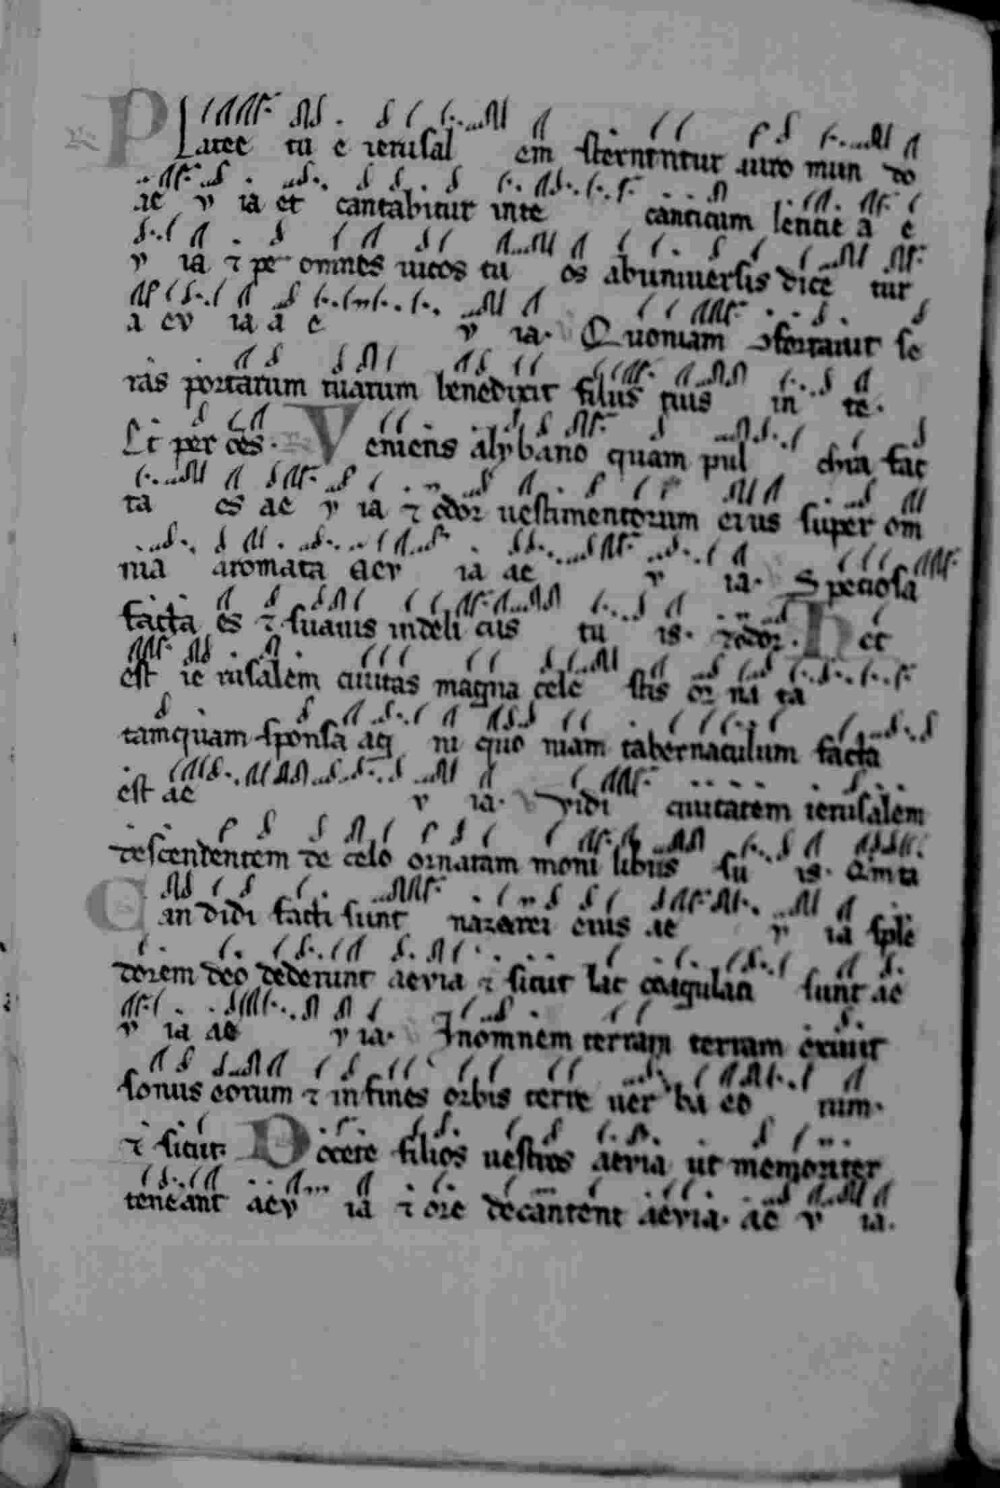 PLatee tu e ierusal em sternentur auro mun do
ae v ia et cantabitur inte canticum leticie a e
v ia ⁊ per omnes uicos tu os abuniuersis dice tur
a ev ia a e v ia. Quoniam ꝯfortauit se
ras portarum tuarum benedixit filius tuis in te.
Et per oēs. Veniens alybano quam pul chra fac
ta es ae v ia ⁊ odor uestimentorum eius super om
nia aromata aev ia ae v ia. Speciosa
facta es ⁊ suauis indeli ciis tu is. ⁊odor. Hec
est ie rusalem ciuitas magna cele stis or na ta
tamquam sponsa ag ni quo niam tabernaculum facta
est ae v ia. Vidi ciuitatem ierusalem
descendentem de celo ornatam moni libus su is. Qm̄ta
Candidi facti sunt nazarei eius ae v ia sple
dorem deo dederunt aevia ⁊ sicut lac coagulati sunt ae
v ia ae v ia. Inomnem terram terram exiuit
sonus eorum ⁊ infines orbis terre uer ba eo rum.
⁊ sicut. Docete filios uestros aevia ut memoriter
teneant aev ia ⁊ ore decantent aevia. ae v ia.